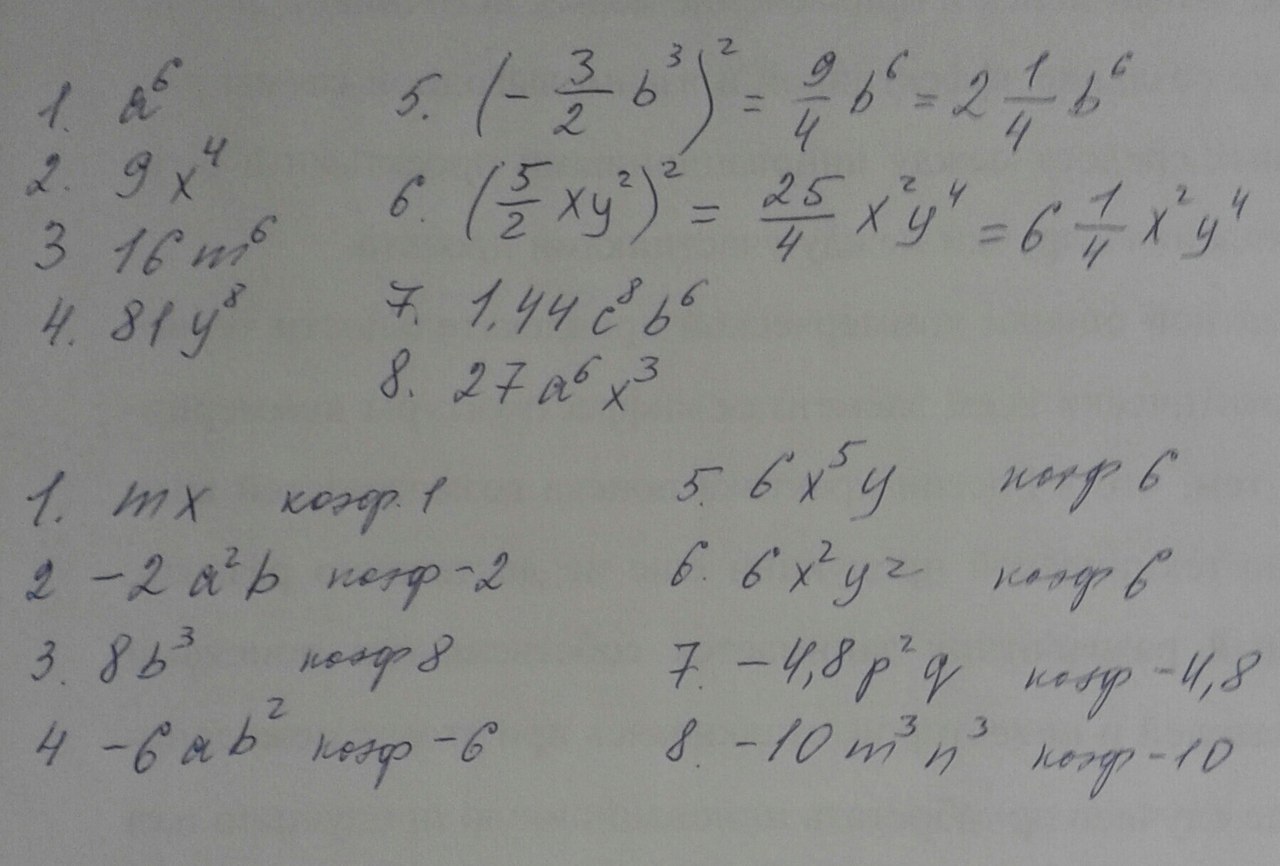 1. a⁶
2. 9x⁴
3 16m⁶
4. 81y⁸
5. (-3/2 b³)² = 9/4 b⁶ = 2 1/4 b⁶
6. (5/2 xy²)² = 25/4 x²y⁴ = 6 1/4 x²y⁴
7. 1.44c⁸b⁶
8. 27a⁶x³
1. mx коэф. 1
2 -2a²b коэф -2
3. 8b³ коэф 8
4 -6ab² коэф -6
5. 6x⁵y коэф 6
6. 6x²yz коэф 6
7. -4,8p²q коэф -4,8
8. -10m³n³ коэф -10